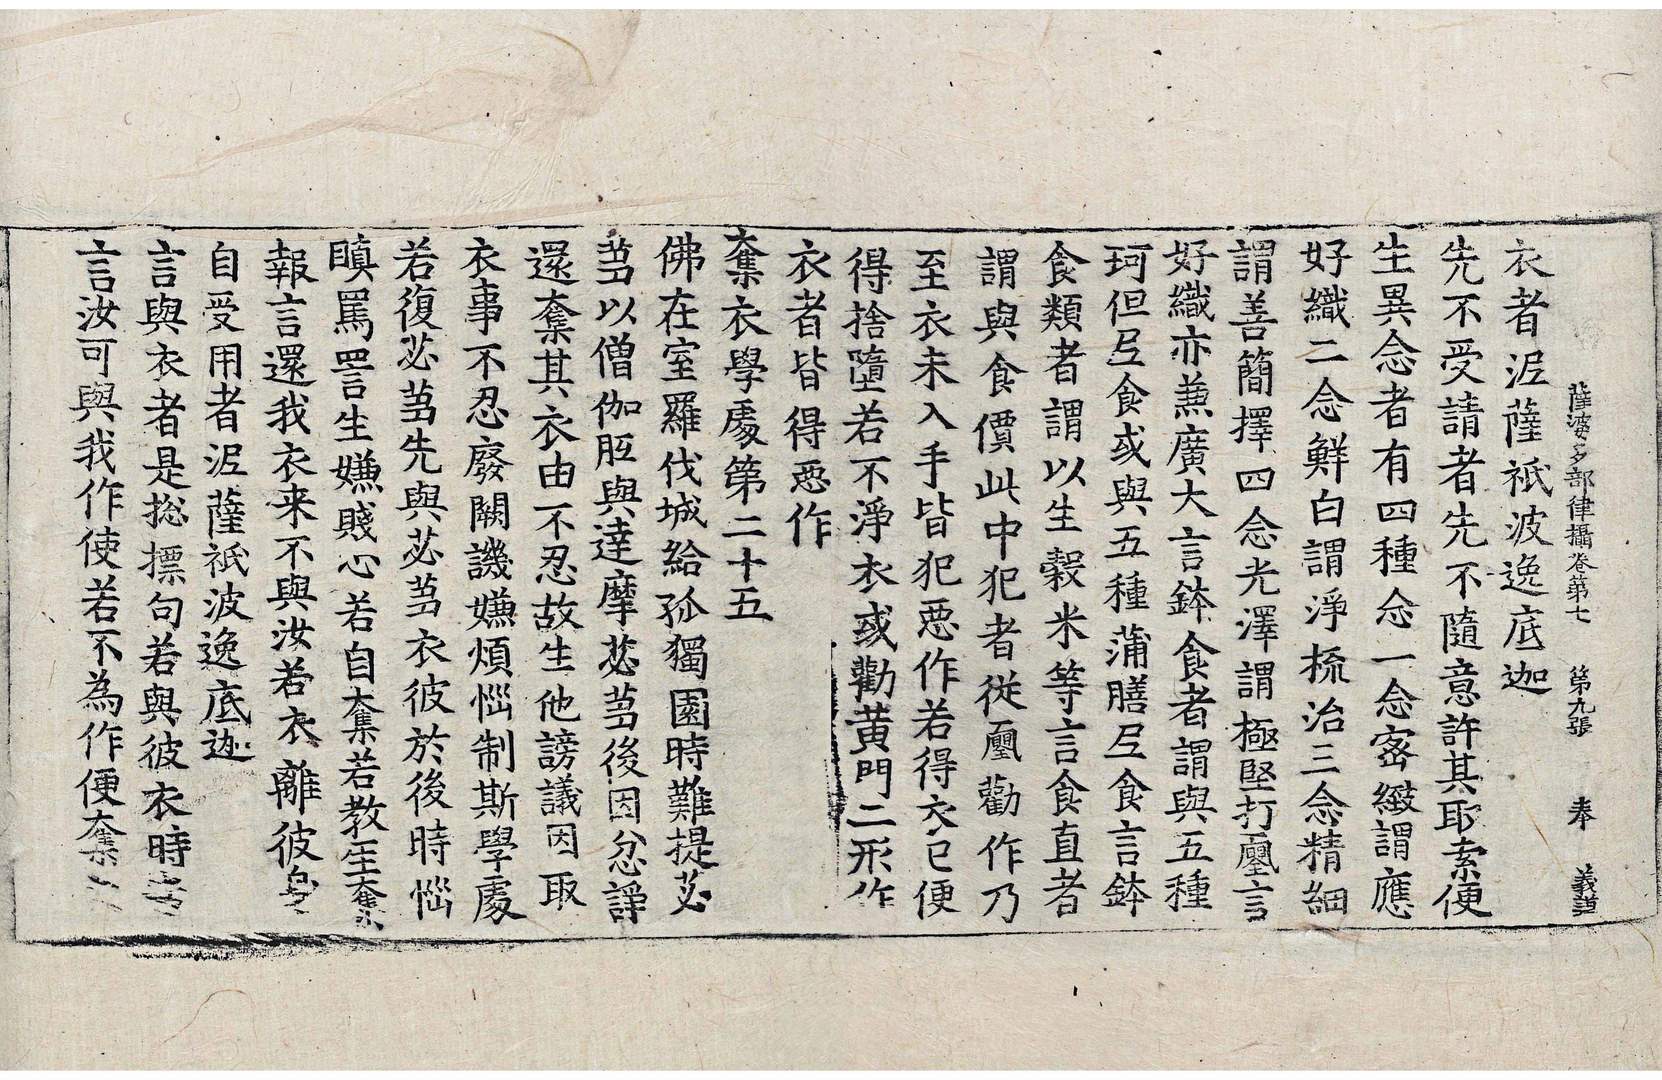 薩婆多部律攝卷第七 第九張 奉
衣者泥薩祇波逸底迦
先不受請者先不隨意許其取索便
生異念者有四種念一念密緻謂應
好織二念鮮白謂淨梳治三念精細
謂善簡擇四念光澤謂極堅打言
好織亦兼廣大言鉢食者謂與五種
珂但尼食或與五種蒲膳尼食言鉢
食類者謂以生穀米等言食直者
謂與食價此中犯者從勸作乃
至衣未入手皆犯惡作若得衣已便
得捨墮若不淨衣或勸黃門二形作
衣者皆得惡作
奪衣學處第二十五
佛在室羅伐城給孤獨園時難提苾
芻以僧伽胝與達摩苾芻後因忿諍
還奪其衣由不忍故生他謗議因取
衣事不忍廢闕譏嫌煩惱制斯學處
若復苾芻先與苾芻衣彼於後時惱
瞋罵詈生嫌賤心若自奪若教𤯔奪
報言還我衣来不與汝若衣離彼身
自受用者泥薩祇波逸底迦
言與衣者是揔摽句若與彼衣時
言汝可與我作使若不為作便奪